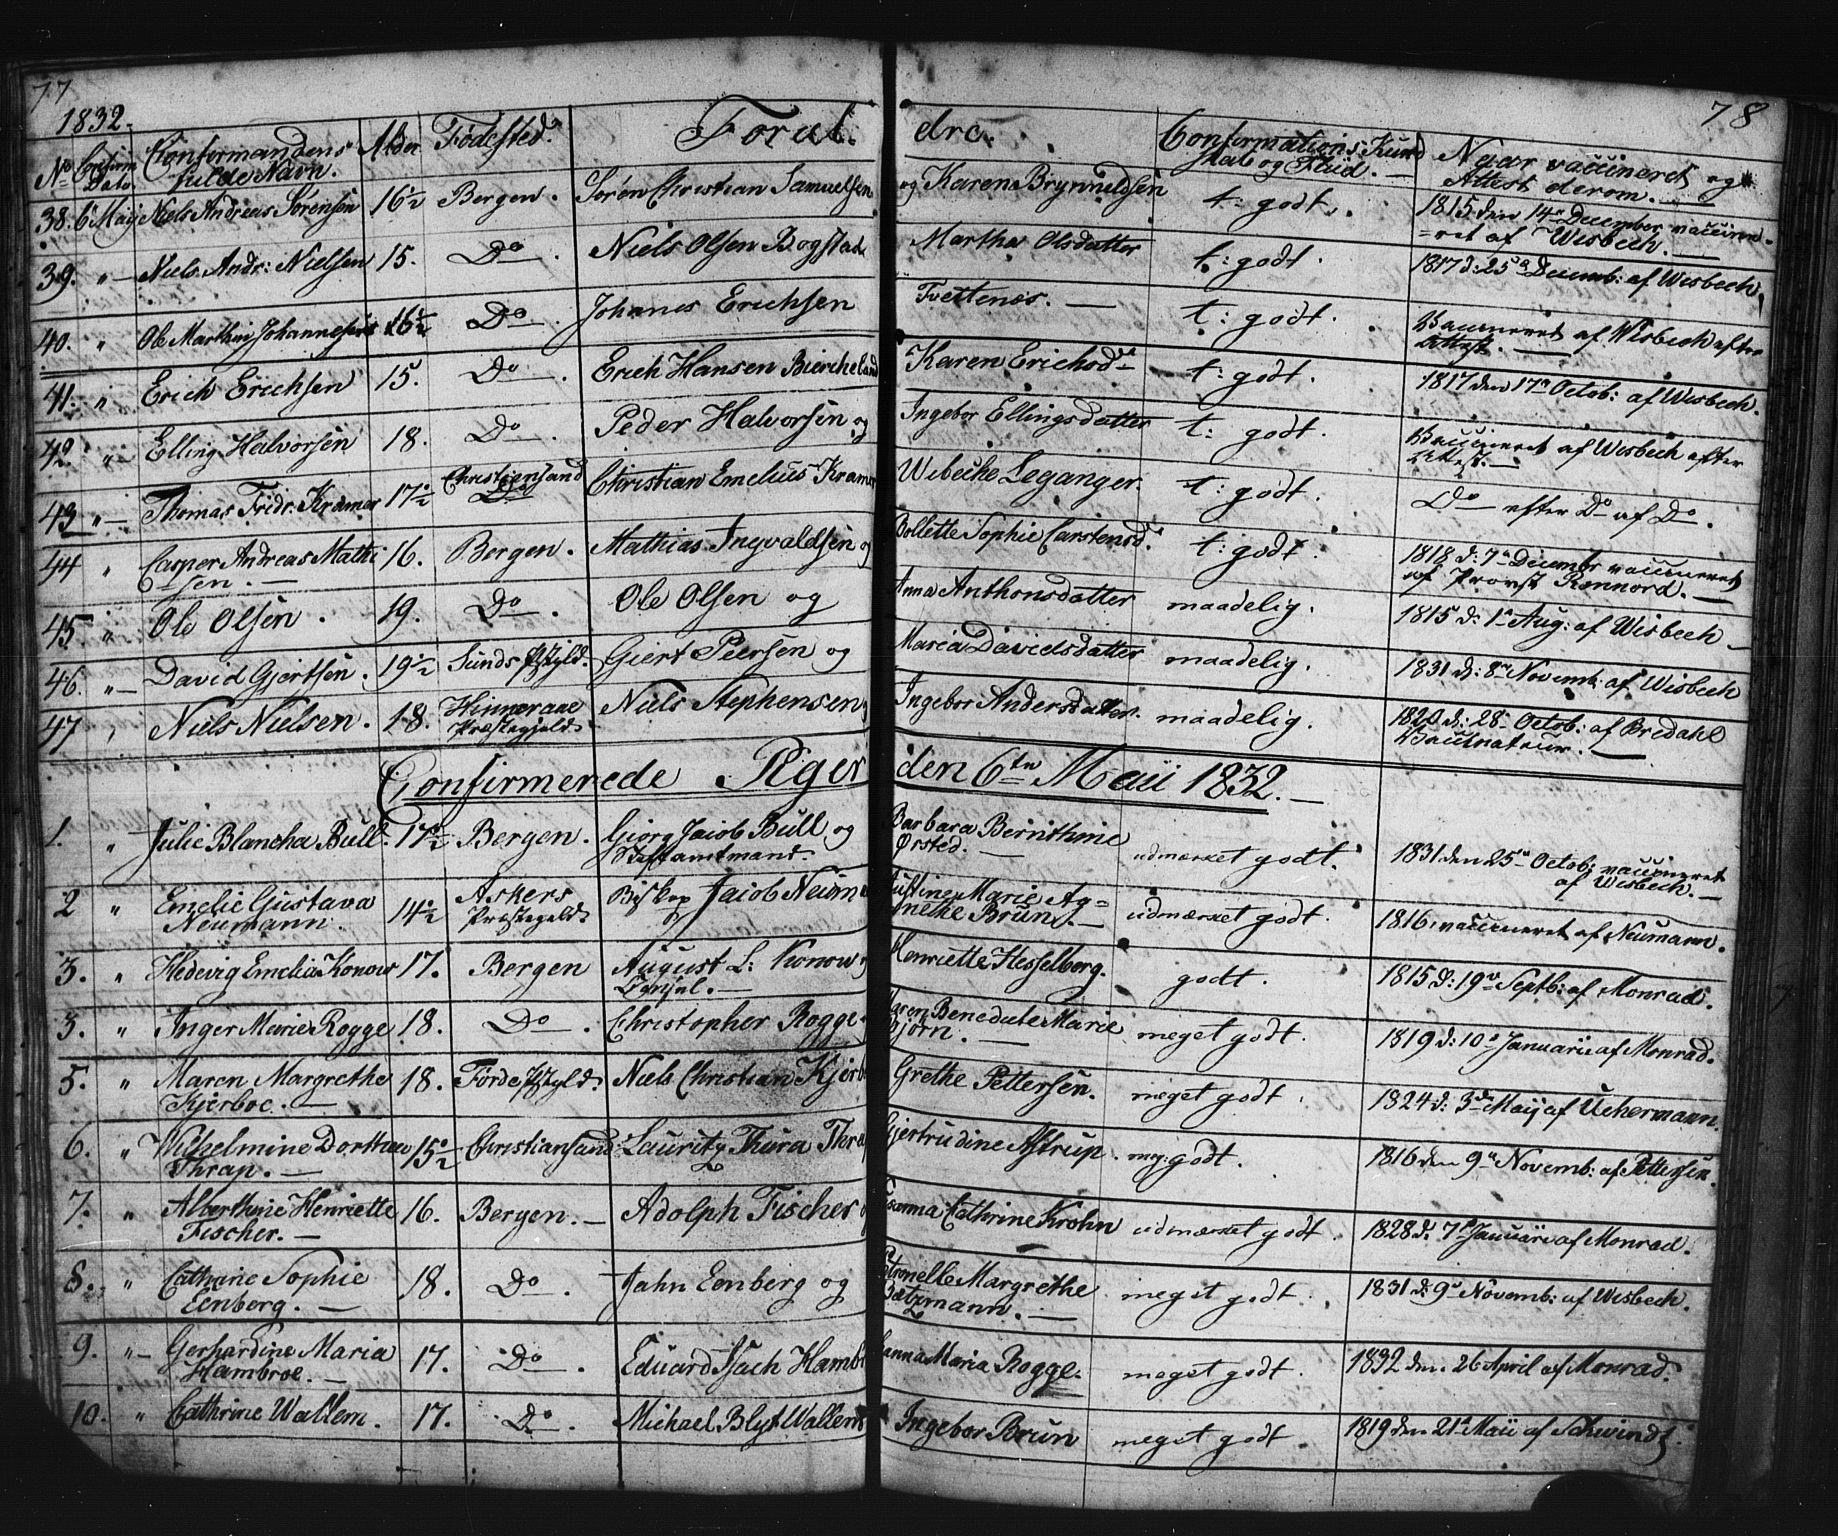 77
78
1832.
No Confirm Dato Confirmandens fulde Navn. Alder Fødested. Foræl. dre. Confirmations: Kundskab og Flid. Naar vaccineret og Attest derom.
38. 6 Maij Niels Andreas Sørensen 16½ Bergen. Søren Christian Samuelsen og Karen Brynnildsen t: godt. 1815 den 14de December vaccine-
ret af Wisbech.
39. " Niels Andr: Nielsen 15. Do. Niels Olsen Bogstad Martha Olsdatter t: godt. 1817 d: 25de Decemb: af Wisbech.
40. " Ole Marthin Johannesen 16½ Do. Johanes Erichsen Tvettenæs. t: godt. Vaccineret af Wisbech efter
Attest.
41. " Erich Erichsen 15. Do. Erich Hansen Biercheland Karen Erichsd. t: godt. 1817 den 17de Octob: af Wisbech.
42. " Elling Halvorsen 18. Do. Peder Halvorsen og Ingebor Ellingsdatter t: godt. Vaccineret af Wisbech efter
Attest.
43 " Thomas Fridr. Kramer 17½ Christiansand Do Christian Emelius Kramer Wibeche Leganger. t: godt. Do efter Do af Do.
44 " Casper Andreas Mathi
sen. 16. Bergen. Mathias Ingvaldsen og Bollette Sophie Carstensd. t: godt. 1818 d: 7de Decembr vaccineret
af Provst Rennord.
45 " Ole Olsen. 19. Do. Ole Olsen og Anna Anthonsdatter maadelig. 1815 d: 1de Aug: af Wisbech
46. " David Gjertsen. 19½ Sunds Pstgjld. Giert Peersen og Maria Davidsdatter maadelig. 1831 d: 8de Novemb: af Wisbech
47 " Niels Nielsen. 18. Hinneraae
Præstegjeld. Niels Stephensen Ingebor Andersdatter. maadelig. 1820 d: 28. Octob: af Bredahl
Vaccinateur.
Confirmerede Piger den 6te Maii 1832.
1. " Julie Blancha Bull. 17½ Bergen. Giorg Jacob Bull og
Stiftamtmand. Barbara Bernthine
Ørsted. udmærket godt. 1831 den 25de Octob: vaccineret
af Wisbech.
2 " Emelie Gustava
Neumann. 14½ Askers
Præstegield. Biskop Jacob Neuma Justine Marie Ag=
nethe Brun. udmærket godt. 1816. vaccineret af Neumann.
3. " Hedevig Emelia Konow 17. Bergen August L: Konow
Consul. Henriette Hesselberg. godt. 1815 d: 19de Septb: af Monrad.
3. " Inger Marie Rogge 18. Do. Christopher Rogge Maren Benedicte Marie
Bjørn. meget godt. 1819 d: 10de Januarii af Monrad.
5. " Maren Margrethe
Kierboe. 18. Førde Pstgjld. Niels Christian Kjerb Grethe Pettersen. meget godt. 1824 d: 3die Maij af Uchermann.
6. " Wilhelmine Dorthea
Thrap. 15½ Christiansand Lauritz Thura Thrap Gjertrudine Astrup. meg: godt. 1816 den 9de Novemb: af Pettersen.
7. " Alberthine Henriette
Fischer. 16. Bergen. Adolph Fischer Susanna Cathrine Krohn udmærket godt. 1828 d: 7de Januarii af Monrad.
8. " Cathrine Sophie
Eenberg. 18. Do. Jahn Eenberg og Petronelle Margrethe
Bætzmann. meget godt. 1831 d: 9de Novemb: af Wisbech.
9. " Gerhardine Maria
Hambroe. 17. Do. Eduard Isach Hambr Hanna Maria Rogge. meget godt. 1832 den 26 April af Monrad.
10. " Cathrine Wallem. 17. Do. Michael Blyt Wallem Ingebor Brun meget godt. 1819 den 21de Maii af Schwindt.